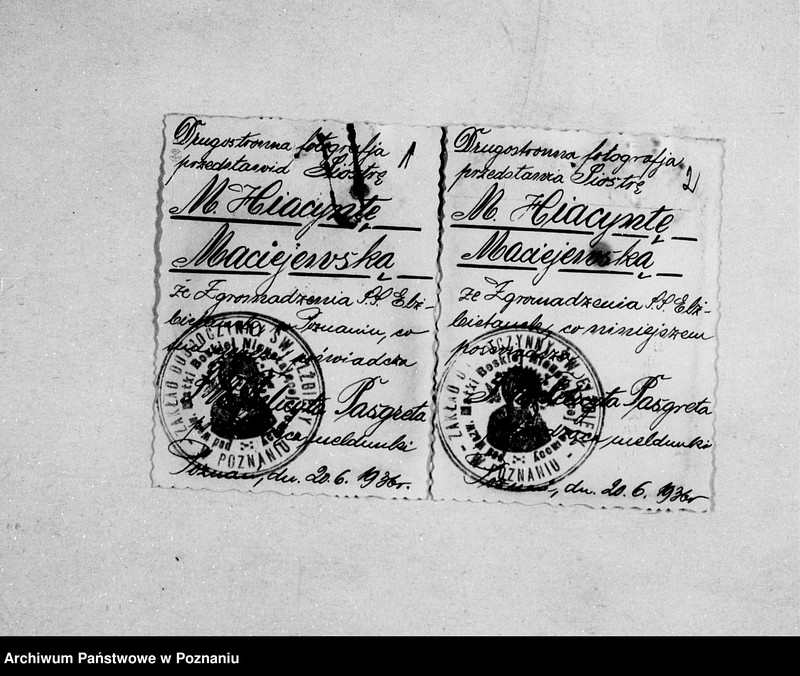 Drugostronna fotografja 1
przedstawia Siostrę
M. Hiacyntę
Maciejewską
ze Zgromadzenia S.S. Elż-
bietanek w Poznaniu, co
poświadcza
Pasgreta
meldunki
Poznań, dn. 20.6.1936r.
ZAKŁAD DOBROCZYNNY ŚW. ELŻBIETY
W POZNANIU
pod wezw. Matki Boskiej Nieustającej Pomocy
Drugostronna fotografja
przedstawia Siostrę 2
M. Hiacyntę
Maciejewską
ze Zgromadzenia S.S. Elż-
bietanek, co niniejszem
poświadcza
Pasgreta
meldunki
Poznań, dn. 20.6.1936r
ZAKŁAD DOBROCZYNNY ŚW. ELŻBIETY
W POZNANIU
pod wezw. Matki Boskiej Nieustającej Pomocy
Archiwum Państwowe w Poznaniu